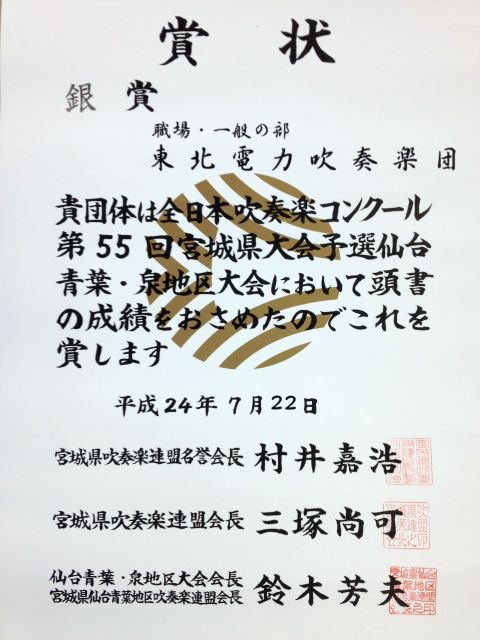 賞状
銀賞
職場・一般の部
東北電力吹奏楽団
貴団体は全日本吹奏楽コンクール
第55回宮城県大会予選仙台
青葉・泉地区大会において頭書
の成績をおさめたのでこれを
賞します
平成24年7月22日
宮城県吹奏楽連盟名誉会長 村井嘉浩
宮城県吹奏楽連盟会長 三塚尚可
仙台青葉・泉地区大会会長
宮城県仙台青葉地区吹奏楽連盟会長 鈴木芳夫